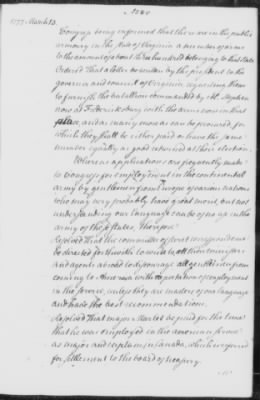 1777 March 13.
Congress being informed that there are in the public
armory in the state of Virginia a number of arms
to the amount of about hundred belonging to that state
Ordered That a letter be written by the president to the
governor and council of Virginia requesting them
to furnish the battalions commanded by
now at Fredericksburg with the arms now in that
place, and as many more as can be procured, for
which they shall be either paid or have the same
number equally as good returned at their election.
Whereas applications are frequently made
to Congress for employment in the continental
army by gentlemen from foreign nations
who may very probably have great merit, but not
understanding our language can be of no use in the
army of these states, Therefore
Resolved That the committee of secret correspondence
be directed forthwith to write to all their ministers
and agents abroad to discourage all gentlemen from
coming to America with expectation of employment
in the service, unless they are masters of our language
and have the best recommendations.
Resolved That major be paid for the time
that he was employed in the american service
as major and captain in Canada, which is referred
for settlement to the board of treasury.